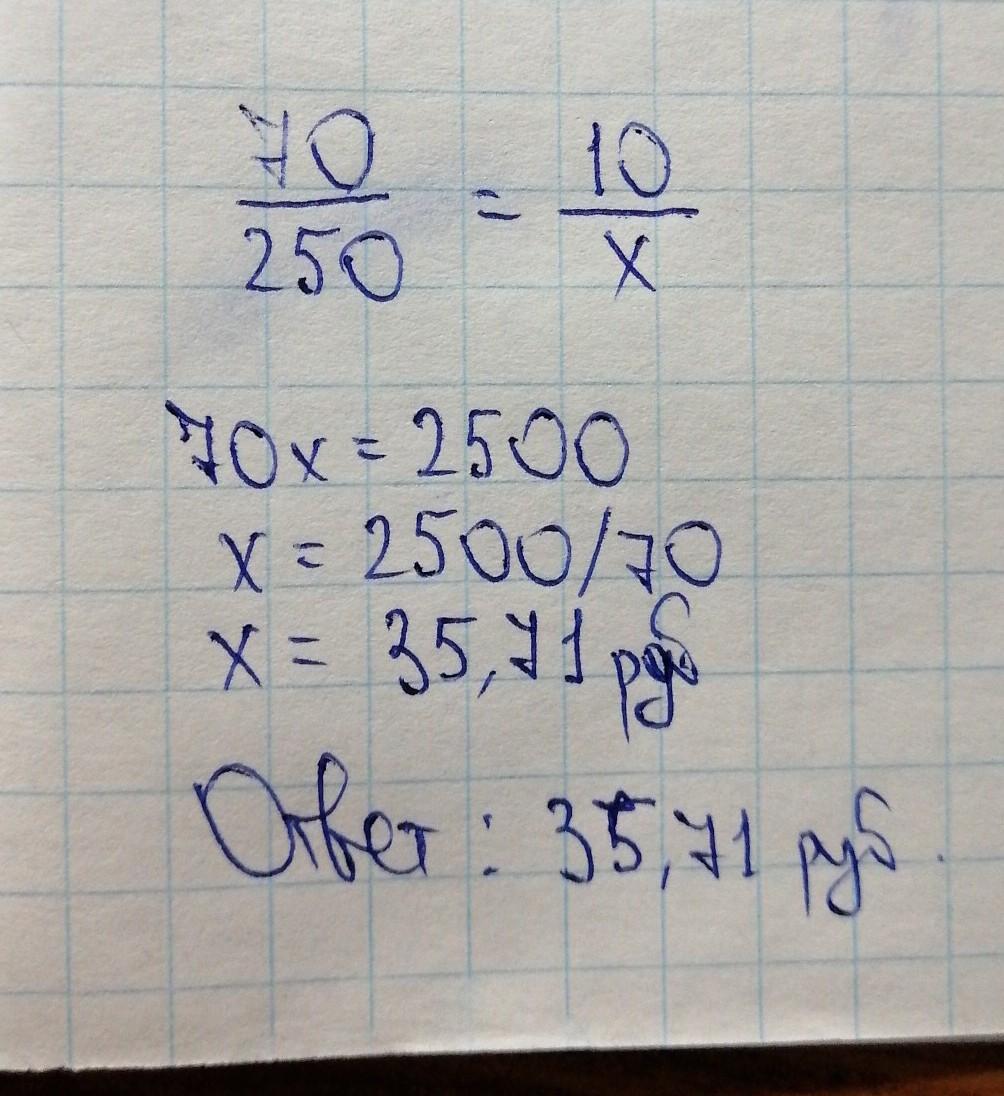 70/250 = 10/x
70x = 2500
x = 2500/70
x = 35,71 руб
Ответ: 35,71 руб.